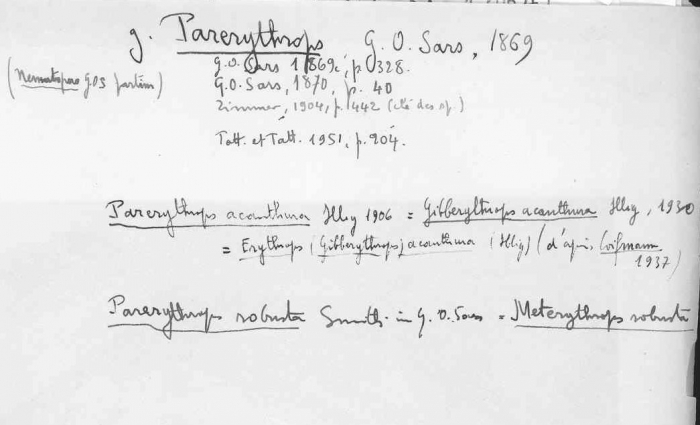 g. Parerythrops G. O. Sars, 1869
(Nematopus G.O.S partim)
G.O. Sars 1869c, p. 328.
G.O. Sars, 1870, p. 40
Zimmer, 1904, p. 442 (clé des sp.)
Tatt. et Tatt. 1951, p. 204.
Parerythrops acanthura Illig 1906 = Gibberythrops acanthura Illig, 1930
= Erythrops (Gibberythrops) acanthura (Illig) (d'après 1937)
Parerythrops robusta Smith in G.O. Sars = Meterythrops robusta